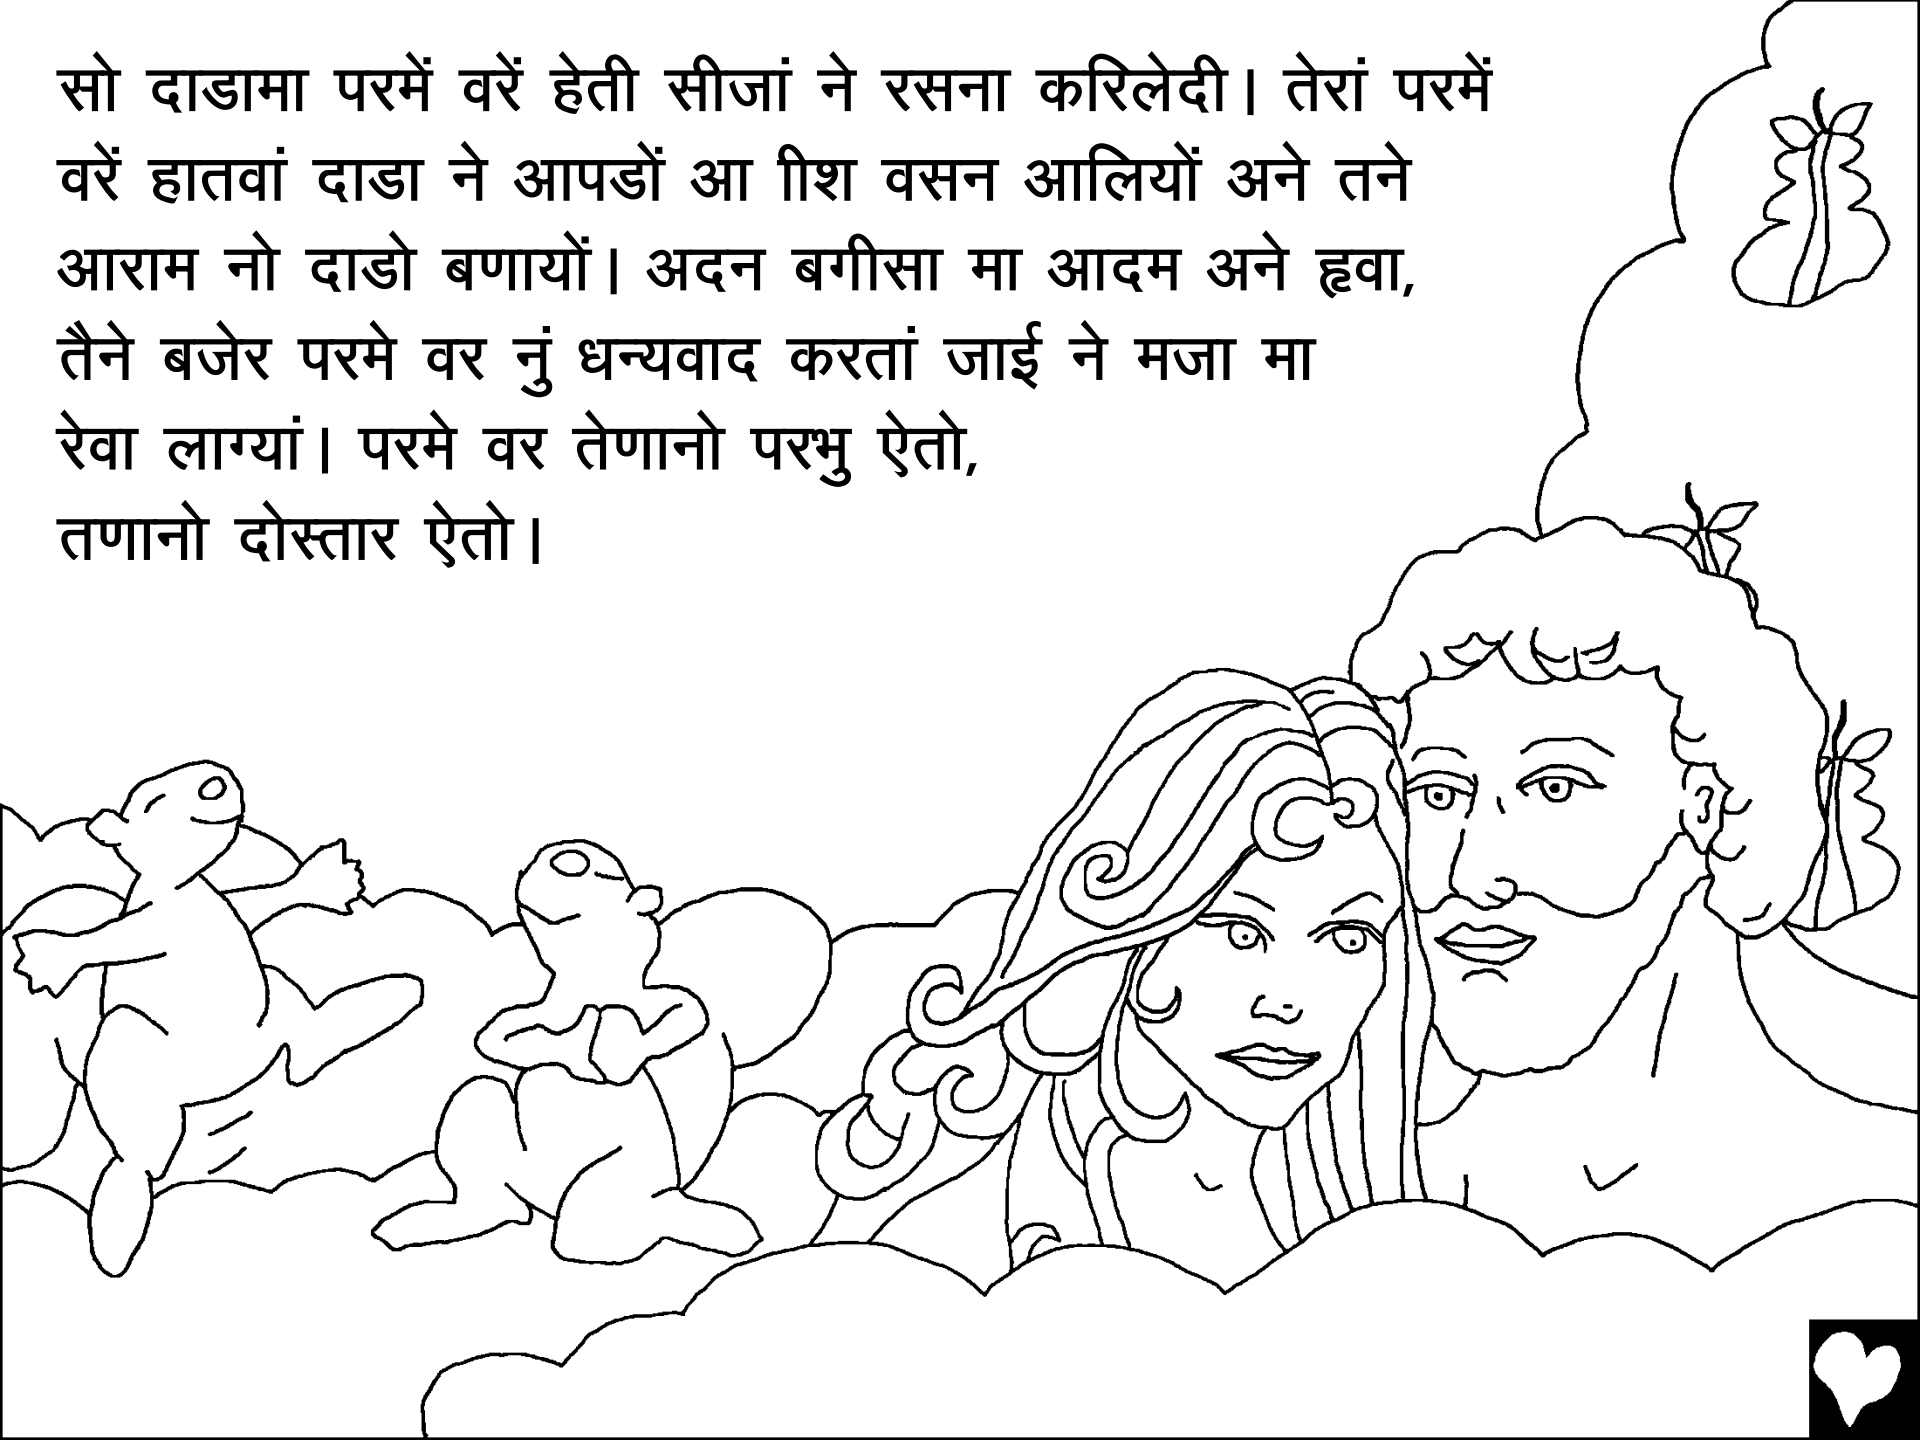 सो दाडामा परमें वरें हेती सीजां ने रसना करिलेदी। तेरां परमें
वरें हातवां दाडा ने आपडों आ ाीश वसन आलियों अने तने
आराम नो दाडो बणायों। अदन बगीसा मा आदम अने हृवा,
तैने बजेर परमे वर नुं धन्यवाद करतां जाई ने मजा मा
रेवा लाग्यां। परमे वर तेणानो परभु ऐतो,
तणानो दोस्तार ऐतो।